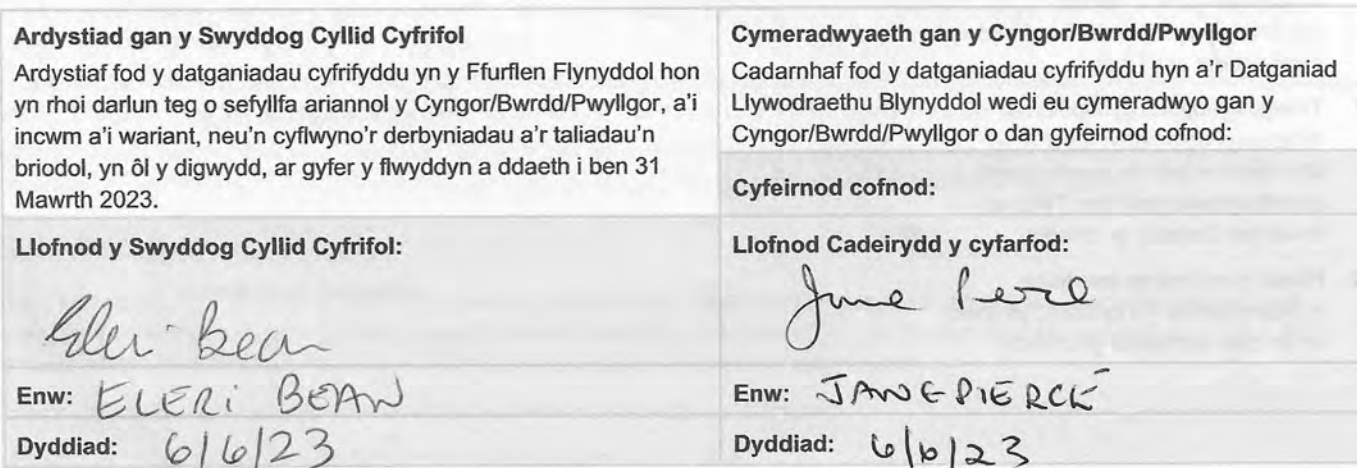 Ardystiad gan y Swyddog Cyllid Cyfrifol
Ardystiaf fod y datganiadau cyfrifyddu yn y Ffurflen Flynyddol hon
yn rhoi darlun teg o sefyllfa ariannol y Cyngor/Bwrdd/Pwyllgor, a'i
incwm a'i wariant, neu'n cyflwyno'r derbyniadau a'r taliadau'n
briodol, yn ôl y digwydd, ar gyfer y flwyddyn a ddaeth i ben 31
Mawrth 2023.
Llofnod y Swyddog Cyllid Cyfrifol:
Eleri Bean
Enw: ELERi BEAN
Dyddiad: 6/6/23
Cymeradwyaeth gan y Cyngor/Bwrdd/Pwyllgor
Cadarnhaf fod y datganiadau cyfrifyddu hyn a'r Datganiad
Llywodraethu Blynyddol wedi eu cymeradwyo gan y
Cyngor/Bwrdd/Pwyllgor o dan gyfeirnod cofnod:
Cyfeirnod cofnod:
Llofnod Cadeirydd y cyfarfod:
Enw: JANE PIERCE
Dyddiad: 6/6/23